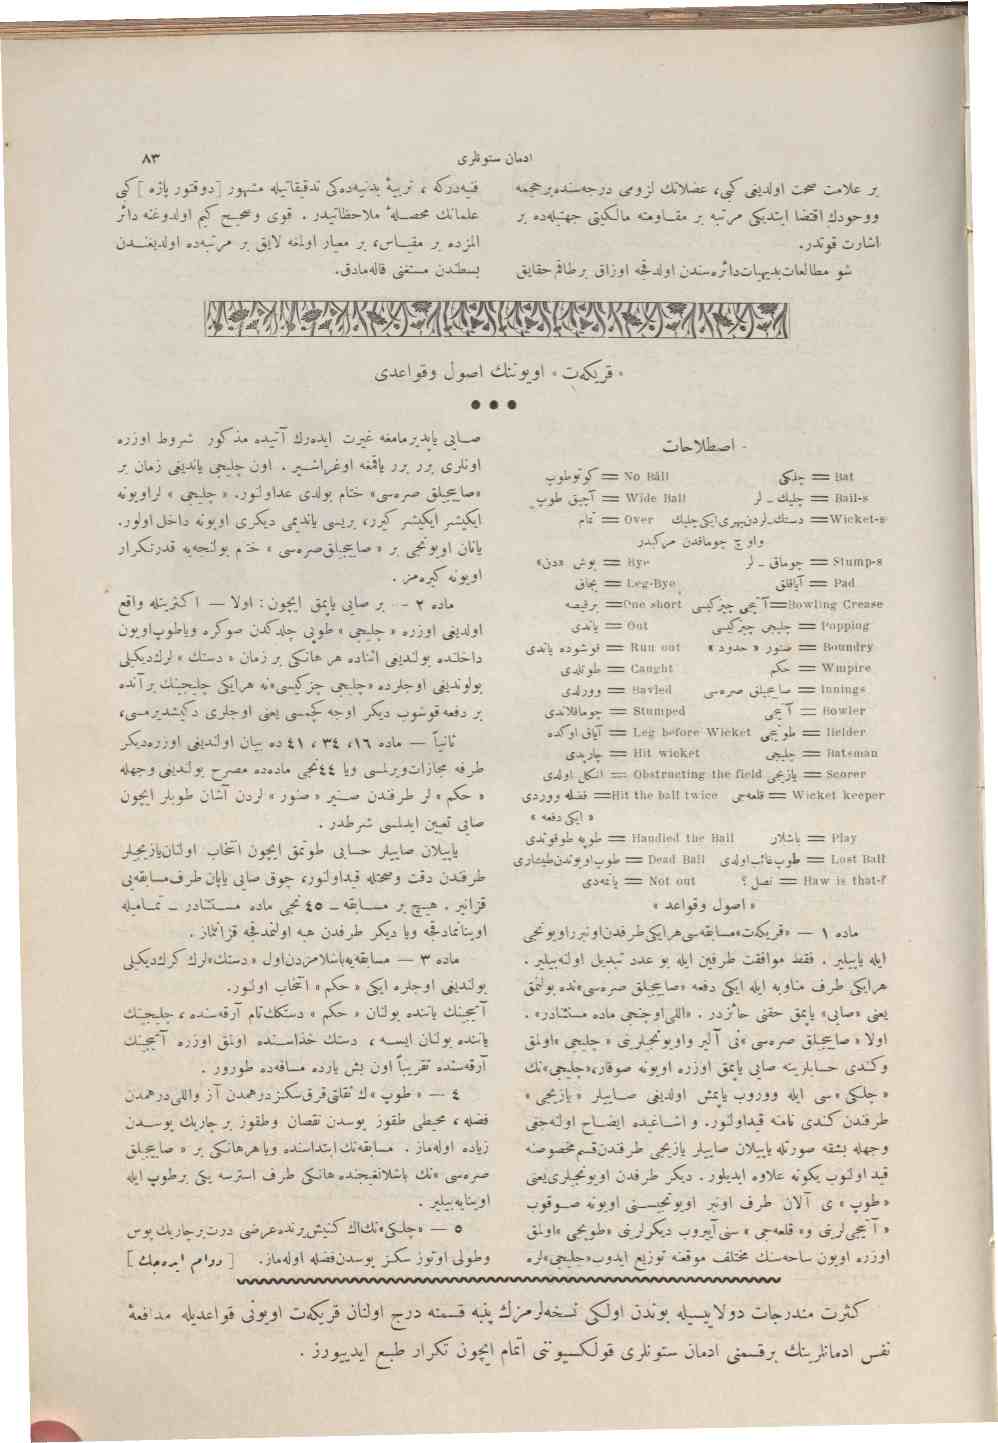 ادمان ستونلری
٨٣
بر علامت صحت اولدیغی كبی، عضلاتك لزومی درجه‌سنده‌بر حجمه
ووجودك اقتضا ایتدیكی مرتبه بر مقـاومته مالكیتی جهتیله‌ده بر
اشارت قوتدر.
شو مطالعات‌بدیهیات‌دائره‌سندن اولدقجه اوزاق برطاقم‌حقایق
فنیه‌دركه ، تربیهٔ بدنیه‌ده‌كی تدقیقاتیله مشهور [دوقتور پاژه] كبی
علمانك محصـله‌ٔ ملاحظاتیدر . قوی وصحیـح كیم اولدوغنه دائر
المزده بر مقیـاس، بر معیار اولمغه لایق بر مرتبه‌ده اولدیغنـدن
بسطندن مستغنی قاله‌مادق.
« قریكه‌ت » اویوننك اصول وقواعدی
- اصطلاحات
Bat = چلكی
Bail-s = چلیك ـ لر
Wicket-s = دستك‌ـلردن‌یهری‌ایكی‌چلیك
واوچ چوماقدن مركبدر
Stump-s = چوماق ـ لر
Pad = آیاقلق
Bowling Crease = آتیجی چیزكیسی
Popping = چلیجی چیزكیسی
Boundry = صنور « حدود »
Wmpire = حكم
Innings = صاییجیلق صره‌سی
Bowler = آتیجی
Fielder = طوتیجی
Batsman = چلیجی
Scorer = یازیجی
Wicket keeper = قلعه‌جی
Play = باشلار
Lost Ball = طوپ‌غائب‌اولدی
Haw is that-? = نصل ؟
No Ball = كوتوطوپ
Wide Ball = آچیق طوپ
Over = تمام
Bye = بوش «دن»
Leg-Bye = بجاق
One short = برقیصه
Out = یاندی
Run out = قوشوده یاندی
Caught = طوتلدی
Bavled = وورلدی
Stumped = چوماقلاندی
Leg before Wicket = آیاق اوكده
Hit wicket = چارپدی
Obstructing the field = انكل اولدی
Hit the ball twice = فضله ووردی
« ایكی دفعه »
Handled the Ball = طوپه طوقوندی
Dead Ball = طوپ‌اویوندن‌طیشاری
Not out = یانمه‌دی
« اصول وقواعد »
ماده ١ — «قریكه‌ت»مسابقه‌سی‌هرایكی‌طرفدن‌اونبرراویونجی
ایله یاپیلیر . فقط موافقت طرفین ایله بو عدد تبدیل اولنه‌بیلیر .
هرایكی طرف مناوبه ایله ایكی دفعه «صاییجیلق صره‌سی»نده بولنمق
یعنی «صایی» یاپمق حقنی حائزدر . «اللی‌اوچنجی ماده مستثنادر» .
اولا « صاییجیلق صره‌سی »نی آلیر واویونجیلرینی « چلیجی »اولمق
وكندی حسابلرینه صایی یاپمق اوزره اویونه صوقار،«چلیجی»نك
« چلكی »سی ایله ووروب یاپمش اولدیغی صـاییلر « یازیجی »
طرفندن كندی نامنه قیداولنور. واشـاغیده ایضـاح اولنه‌جغی
وجهله بشقه صورتله یاپیلان صاییلر یازیجی طرفندن‌قسم‌مخصوصنه
قید اولنوب یكونه علاوه ایدیلور . دیكر طرفدن اویونجیلری‌یعنی
« طوپ » ی آلان طرف اونبر اویونجیسـنی اویونه صـوقوب
« آتیجی‌لرینی و« قلعه‌جی » سنی آییروب دیكرلرینی «طوتیجی »اولمق
اوزره اویون ساحه‌سنك مختلف موقعنه توزیع ایدوب«چلیجی»لره
صـایی یاپدیرمامغه غیرت ایده‌رك آتیده مذكور شروط اوزره
اونلری برر برر یاقمغه اوغراشـیر . اون چلیجی یاندیغی زمان بر
«صاییجیلق صره‌سی» ختام بولدی عداولنور. « چلیجی » لراویونه
ایكیشر ایكیشر كیرر، بریسی یاندیمی دیكری اویونه داخل اولور.
یانان اویونجی بر « صاییجیلق‌صره‌سی » ختام بولنجه‌یه قدرتكرار
اویونه كیره‌مز .
ماده ٢ - بر صایی یاپمق ایچون : اولا — اكثریتله واقع
اولدیغی اوزره « چلیجی » طوپی چلدكدن صوكره ویاطوپ‌اویون
داخلنده بولندیغی اثناده هر هانكی بر زمان « دستك » لرك‌دیكیلی
بولوندیغی اوجلرده «چلیجی چزكیسی»نه هرایكی چلیجینك بر آنده
بر دفعه قوشوب دیكر اوجه كچمسی یعنی اوجلری دكیشدیرمسی،
ثانیاً — ماده ١٦، ٣٤ ، ٤١ ده بیان اولندیغی اوزره‌دیكر
طرفه مجازات‌ویرلمسی ویا ٤٤نجی ماده‌ده مصرح بولندیغی وجهله
« حكم » لر طرفندن صـنیر « صنور » لردن آشان طوپلر ایچون
صایی تعیین ایدلمسی شرطدر .
یاپیلان صاییلر حسابی طوتمق ایچون انتخاب اولنان‌یازیجیلر
طرفندن دقت وصحتله قیداولنور، چوق صایی یاپان طرف‌مسابقه‌یی
قزانیر . هیـچ بر مسـابقه ـ ٤٥ نجی ماده مسـتثنادر ـ تمـامیله
اوینانمادقجه ویا دیكر طرفدن هبه اولنمدقجه قزانلماز .
ماده ٣ — مسابقه‌یه‌باشلامزدن‌اول «دستك»لرك كرك‌دیكیلی
بولندیغی اوجلره ایكی « حكم » انتخاب اولنور.
آتیجینك یاننده بولنان « حكم » دستكك‌تام آرقه‌سنده ، چلیجینك
یاننده بولنان ایسـه ، دستك خذاسـنده اولمق اوزره آتیجینك
آرقه‌سنده تقریباً اون بش یارده مسافه‌ده طورور .
٤ — « طوپ »ك ثقلتی‌قرق‌سكزدرهمدن آز واللی‌درهمدن
فضله ، محیطی طقوز بوسدن نقصان وطقوز بر چاریك بوسـدن
زیاده اوله‌ماز . مسابقه‌نك ابتداسنده ویاهرهانكی بر « صاییجیلق
صره‌سی »نك باشلانغیجنده هانكی طرف استرسه یكی برطوپ ایله
اوینایه‌بیلیر .
٥ — «چلكی»نك‌اك كنیش‌یرنده‌عرضی درت‌برچاریك بوس
وطولی اوتوز سكز بوسدن‌فضله اوله‌ماز. [ دوام ایده‌جك ]
كثرت مندرجات دولاییسیله بوندن اولكی نسخه‌لرمزك ینیه قسمنه درج اولنان قریكه‌ت اویونی قواعدیله مدافعهٔ
نفس ادمانلرینك برقسمنی ادمان ستونلری قولكسیوننی اتمام ایچون تكرار طبع ایدییورز .